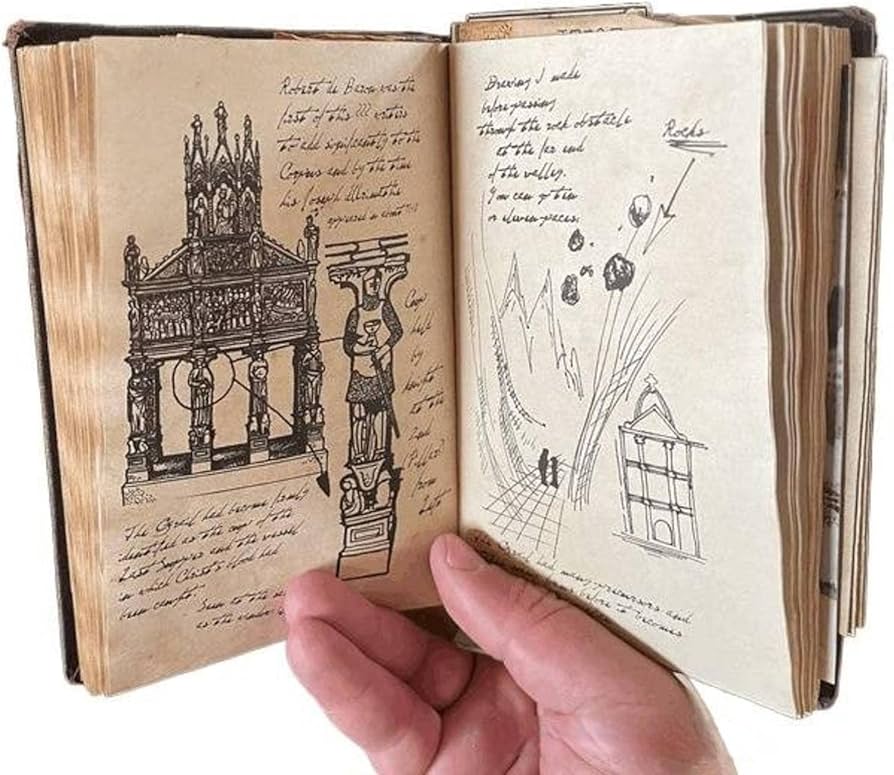 Robert de Boron was the
first of this ??? writers
to add significantly to the
Corpus and by the time
his Joseph
appeared in
Cup
held
by
knight
to the
2nd
(Pillar?)
from
Left
The Grail had become firmly
identified as the cup of the
Last Supper and the vessel
in which Christ's blood had
been caught.
Seen to the
as the
Drawing I made
before passing
through the rock obstacle
at the far end
of the valley.
You can go ten
or eleven paces.
Rocks
or
had many precursors and
before it becomes